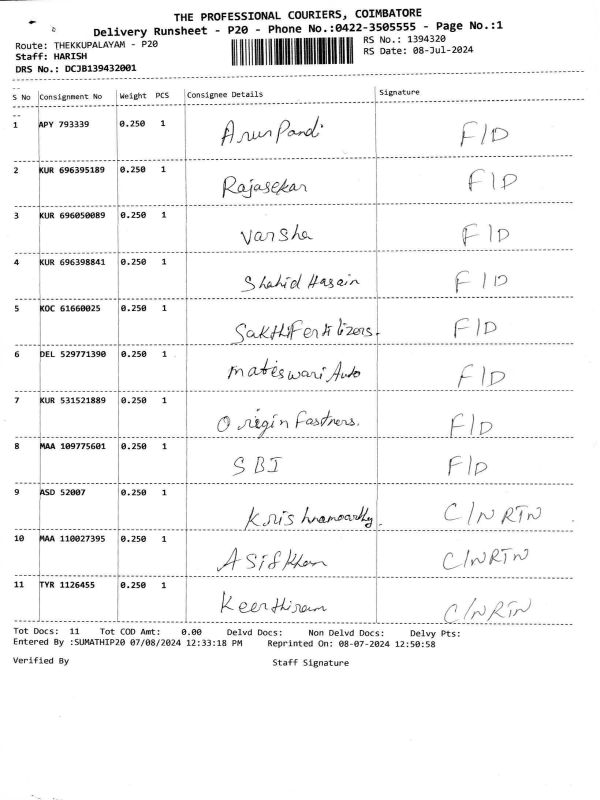 THE PROFESSIONAL COURIERS, COIMBATORE
Delivery Runsheet - P20 - Phone No.:0422-3505555 - Page No.:1
Route: THEKKUPALAYAM - P20
RS No.: 1394320
Staff: HARISH
RS Date: 08-Jul-2024
DRS No.: DCJB139432001
S No Consignment No Weight PCS Consignee Details Signature
1 APY 793339 0.250 1 Arun Pandi F/D
2 KUR 696395189 0.250 1 Rajasekar F/D
3 KUR 696050089 0.250 1 Varsha F/D
4 KUR 696398841 0.250 1 Shahid Hasain F/D
5 KOC 61660025 0.250 1 Sakthi Fertilizers. F/D
6 DEL 529771390 0.250 1 Mateswari Auto F/D
7 KUR 531521889 0.250 1 Origin Fastners. F/D
8 MAA 109775601 0.250 1 SBI F/D
9 ASD 52007 0.250 1 Krishnamoorthy. C/NRTN
10 MAA 110027395 0.250 1 Asif Khan C/NRTN
11 TYR 1126455 0.250 1 Keerthiram C/NRTN
Tot Docs: 11 Tot COD Amt: 0.00 Delvd Docs: Non Delvd Docs: Delvy Pts:
Entered By :SUMATHIP20 07/08/2024 12:33:18 PM Reprinted On: 08-07-2024 12:50:58
Verified By Staff Signature